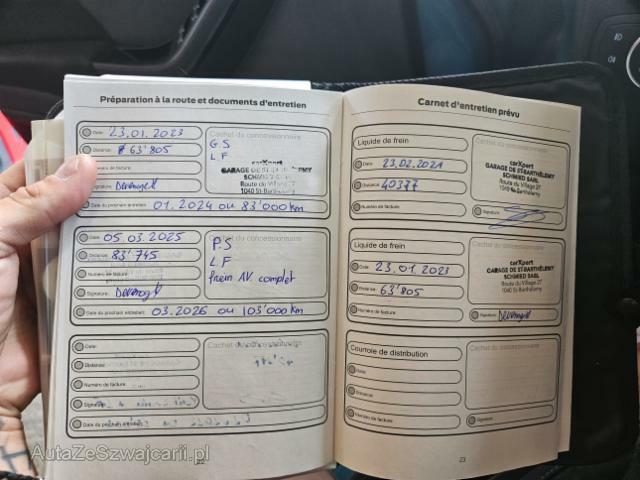 Préparation à la route et documents d'entretien
Date: 23.01.2023
Distance: 63'805
Numéro de facture:
Signature:
Date du prochain entretien: 01.2024 ou 83'000 km
Cachet du concessionnaire
G S
L F
carXpert
GARAGE DE ST-BARTHÉLEMY
SCHMIED SARL
Route du Village 27
1040 St-Barthélemy
Date: 05.03.2025
Distance: 83'745
Numéro de facture:
Signature:
Date du prochain entretien: 03.2026 ou 103'000 km
Cachet du concessionnaire
P.S
L.F
frein AV complet
Date:
Distance:
Numéro de facture:
Signature:
Date du prochain entretien:
Cachet du concessionnaire
22
Carnet d'entretien prévu
Liquide de frein
Date: 23.02.2021
Distance: 40377
Numéro de facture:
Cachet du concessionnaire
carXpert
GARAGE DE ST-BARTHÉLEMY
SCHMIED SARL
Route du Village 27
1040 St-Barthélemy
Signature:
Liquide de frein
Date: 23.01.2023
Distance: 63'805
Numéro de facture:
Cachet du concessionnaire
carXpert
GARAGE DE ST-BARTHÉLEMY
SCHMIED SARL
Route du Village 27
1040 St-Barthélemy
Signature:
Courroie de distribution
Date:
Distance:
Numéro de facture:
Cachet du concessionnaire
Signature:
23
AutaZeSzwajcarii.pl